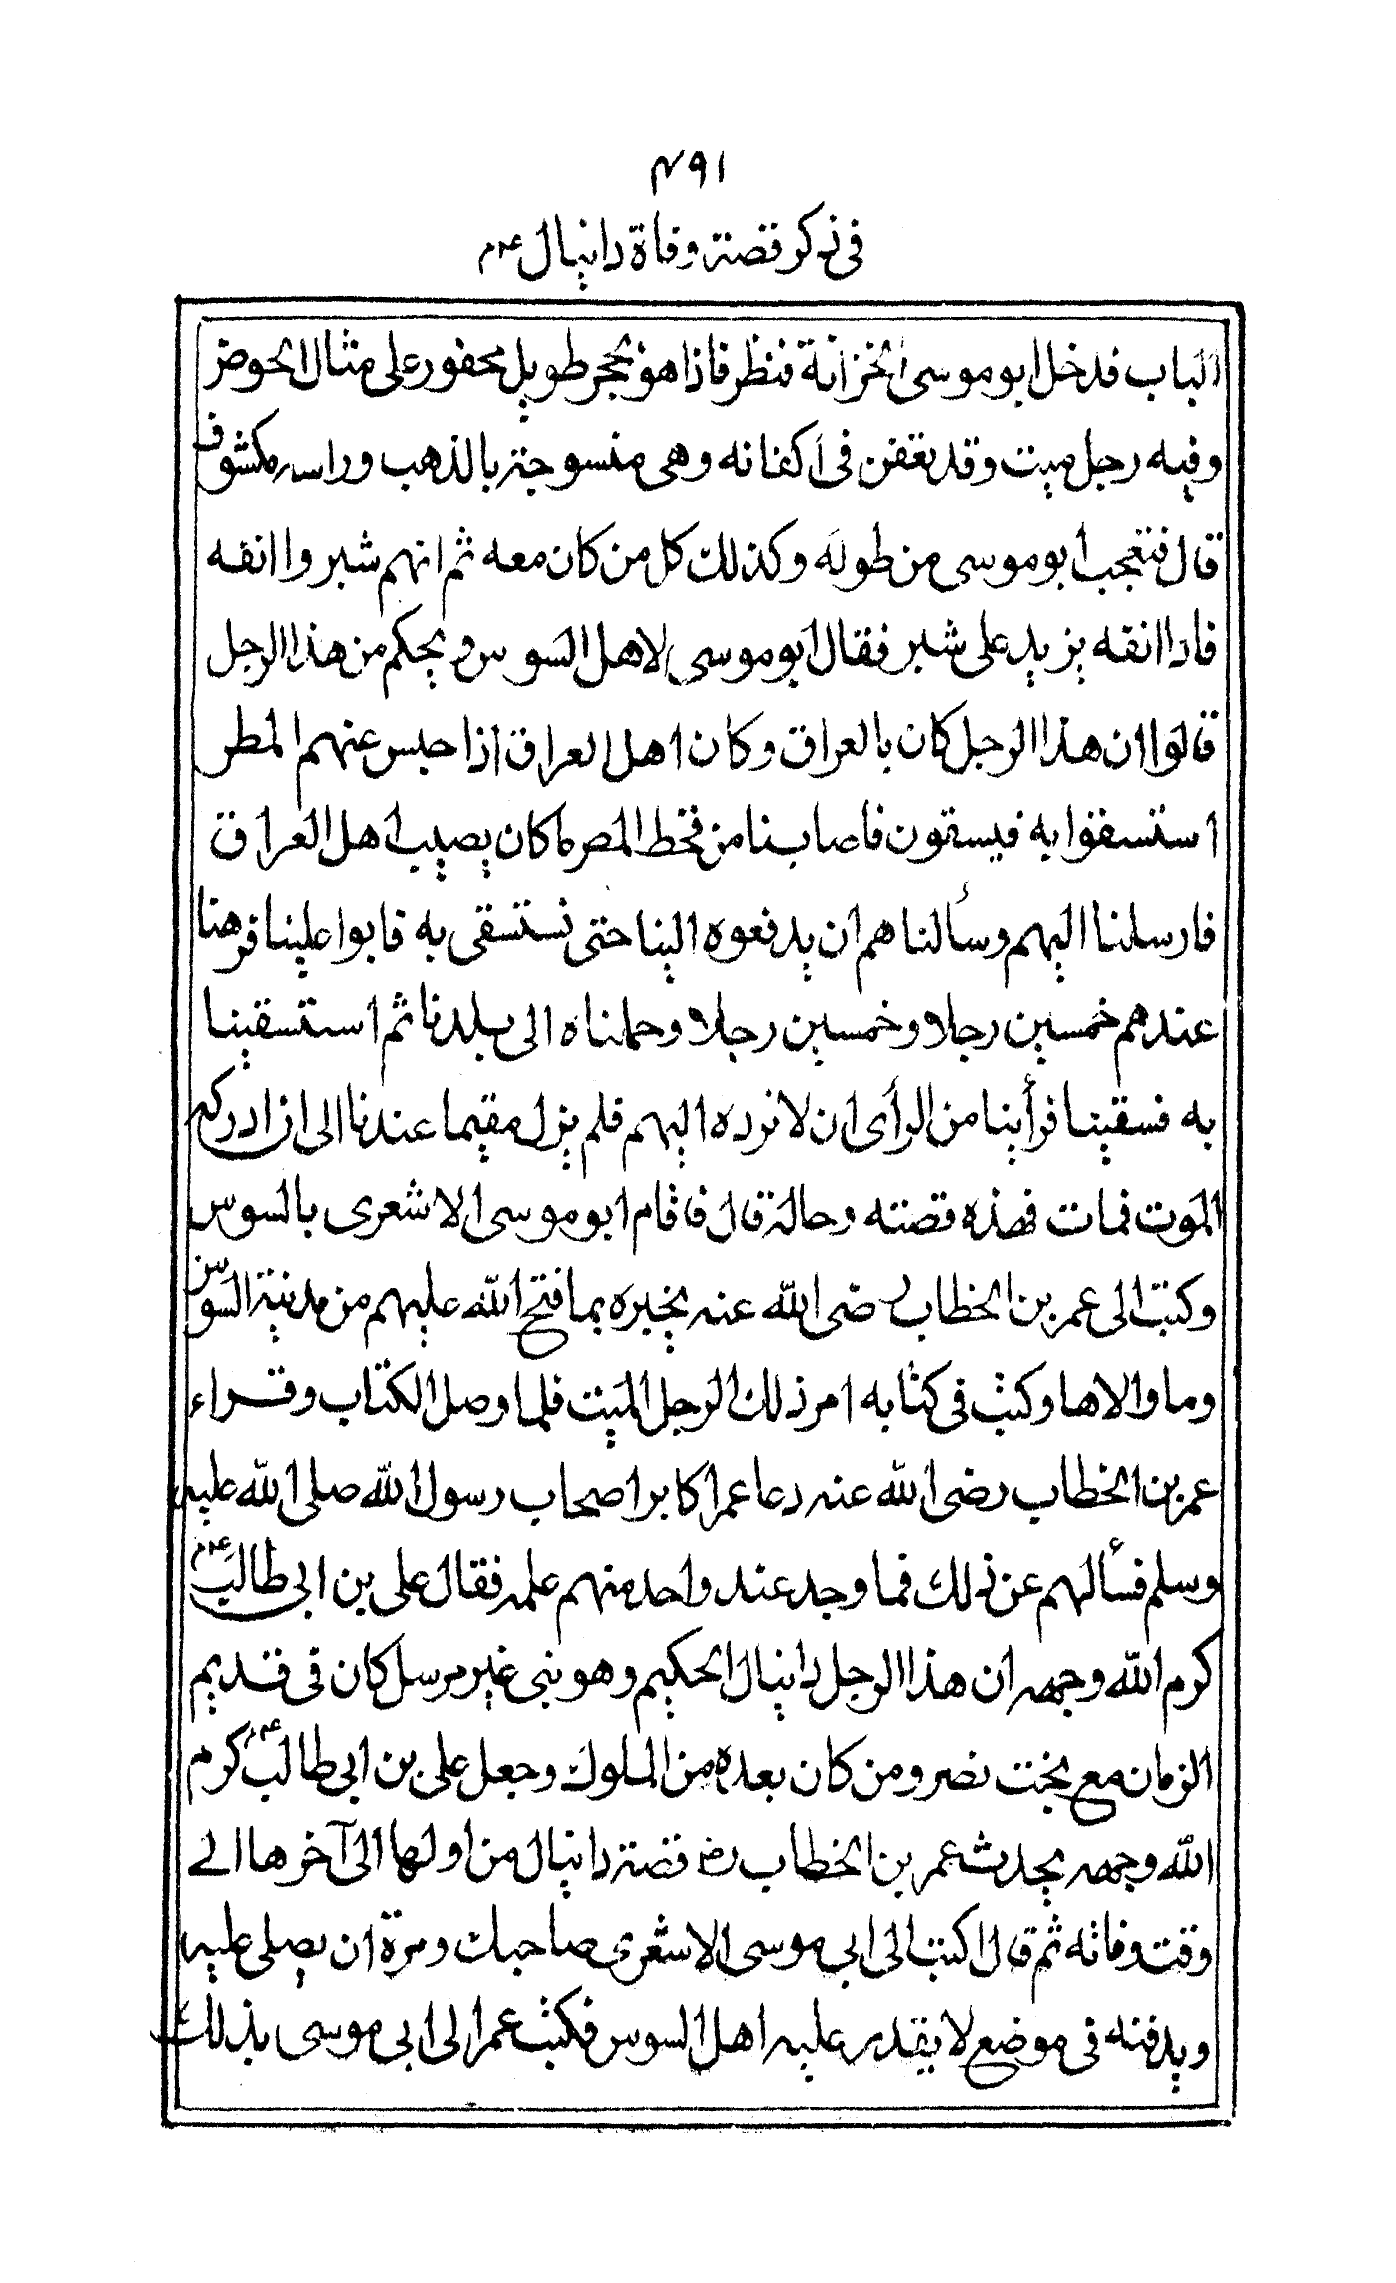 ٤٩١
فى ذكر قصة وفاة دانيال عم
الباب فدخل ابو موسى الخزانة فنظر فاذا هو بحجر طويل محفور على مثال الحوض
وفيه رجل ميت وقد تعفن فى أكفانه وهى منسوجة بالذهب وراسه مكشوف
قال فتعجب ابو موسى من طوله وكذلك كل من كان معه ثم انهم شبروا انفه
فاذا انفه يزيد على شبر فقال ابو موسى لاهل السوس ويحكم من هذا الرجل
قالوا ان هذا الرجل كان بالعراق وكان اهل العراق اذا حبس عنهم المطر
استسقوا به فيسقون فاصابنا من قحط المطر ما كان يصيب اهل العراق
فارسلنا اليهم وسألناهم ان يدفعوه الينا حتى نستسقى به فابوا علينا فرهنا
عندهم خمسين رجلا وخمسين رجلا وحملناه الى بلدنا ثم استسقينا
به فسقينا فرأينا من الرأى ان لا نرده اليهم فلم يزل مقيما عندنا الى ان ادركه
الموت فمات فهذه قصته وحاله قال فاقام ابو موسى الاشعرى بالسوس
وكتب الى عمر بن الخطاب رضى الله عنه يخبره بما فتح الله عليهم من مدينة السوس
وما والاها وكتب فى كتابه امر ذلك الرجل الميت فلما وصل الكتاب وقراء
عمر بن الخطاب رضى الله عنه دعا عمر اكابر اصحاب رسول الله صلى الله عليه
وسلم فسألهم عن ذلك فما وجد عند واحد منهم علمه فقال على بن ابى طالب عم
كرم الله وجهه ان هذا الرجل دانيال الحكيم وهو نبى غير مرسل كان فى قديم
الزمان مع بخت نصر ومن كان بعده من الملوك وجعل على بن ابى طالب عم كرم
الله وجهه يحدث عمر بن الخطاب رض قصة دانيال من اولها الى آخرها الے
وقت وفاته ثم قال اكتب الى ابى موسى الاشعرى صاحبك ومره ان يصلى عليه
ويدفنه فى موضع لا يقدر عليه اهل السوس فكتب عمر الى ابى موسى بذلك